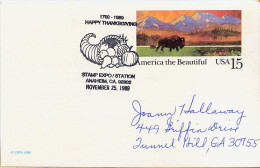 1789 - 1989
HAPPY THANKSGIVING
STAMP EXPO/STATION
ANAHEIM, CA. 92802
NOVEMBER 25, 1989
America the Beautiful USA 15
Joann Hallaway
449 Griffin Drive
Tunnel Hill, GA 30755